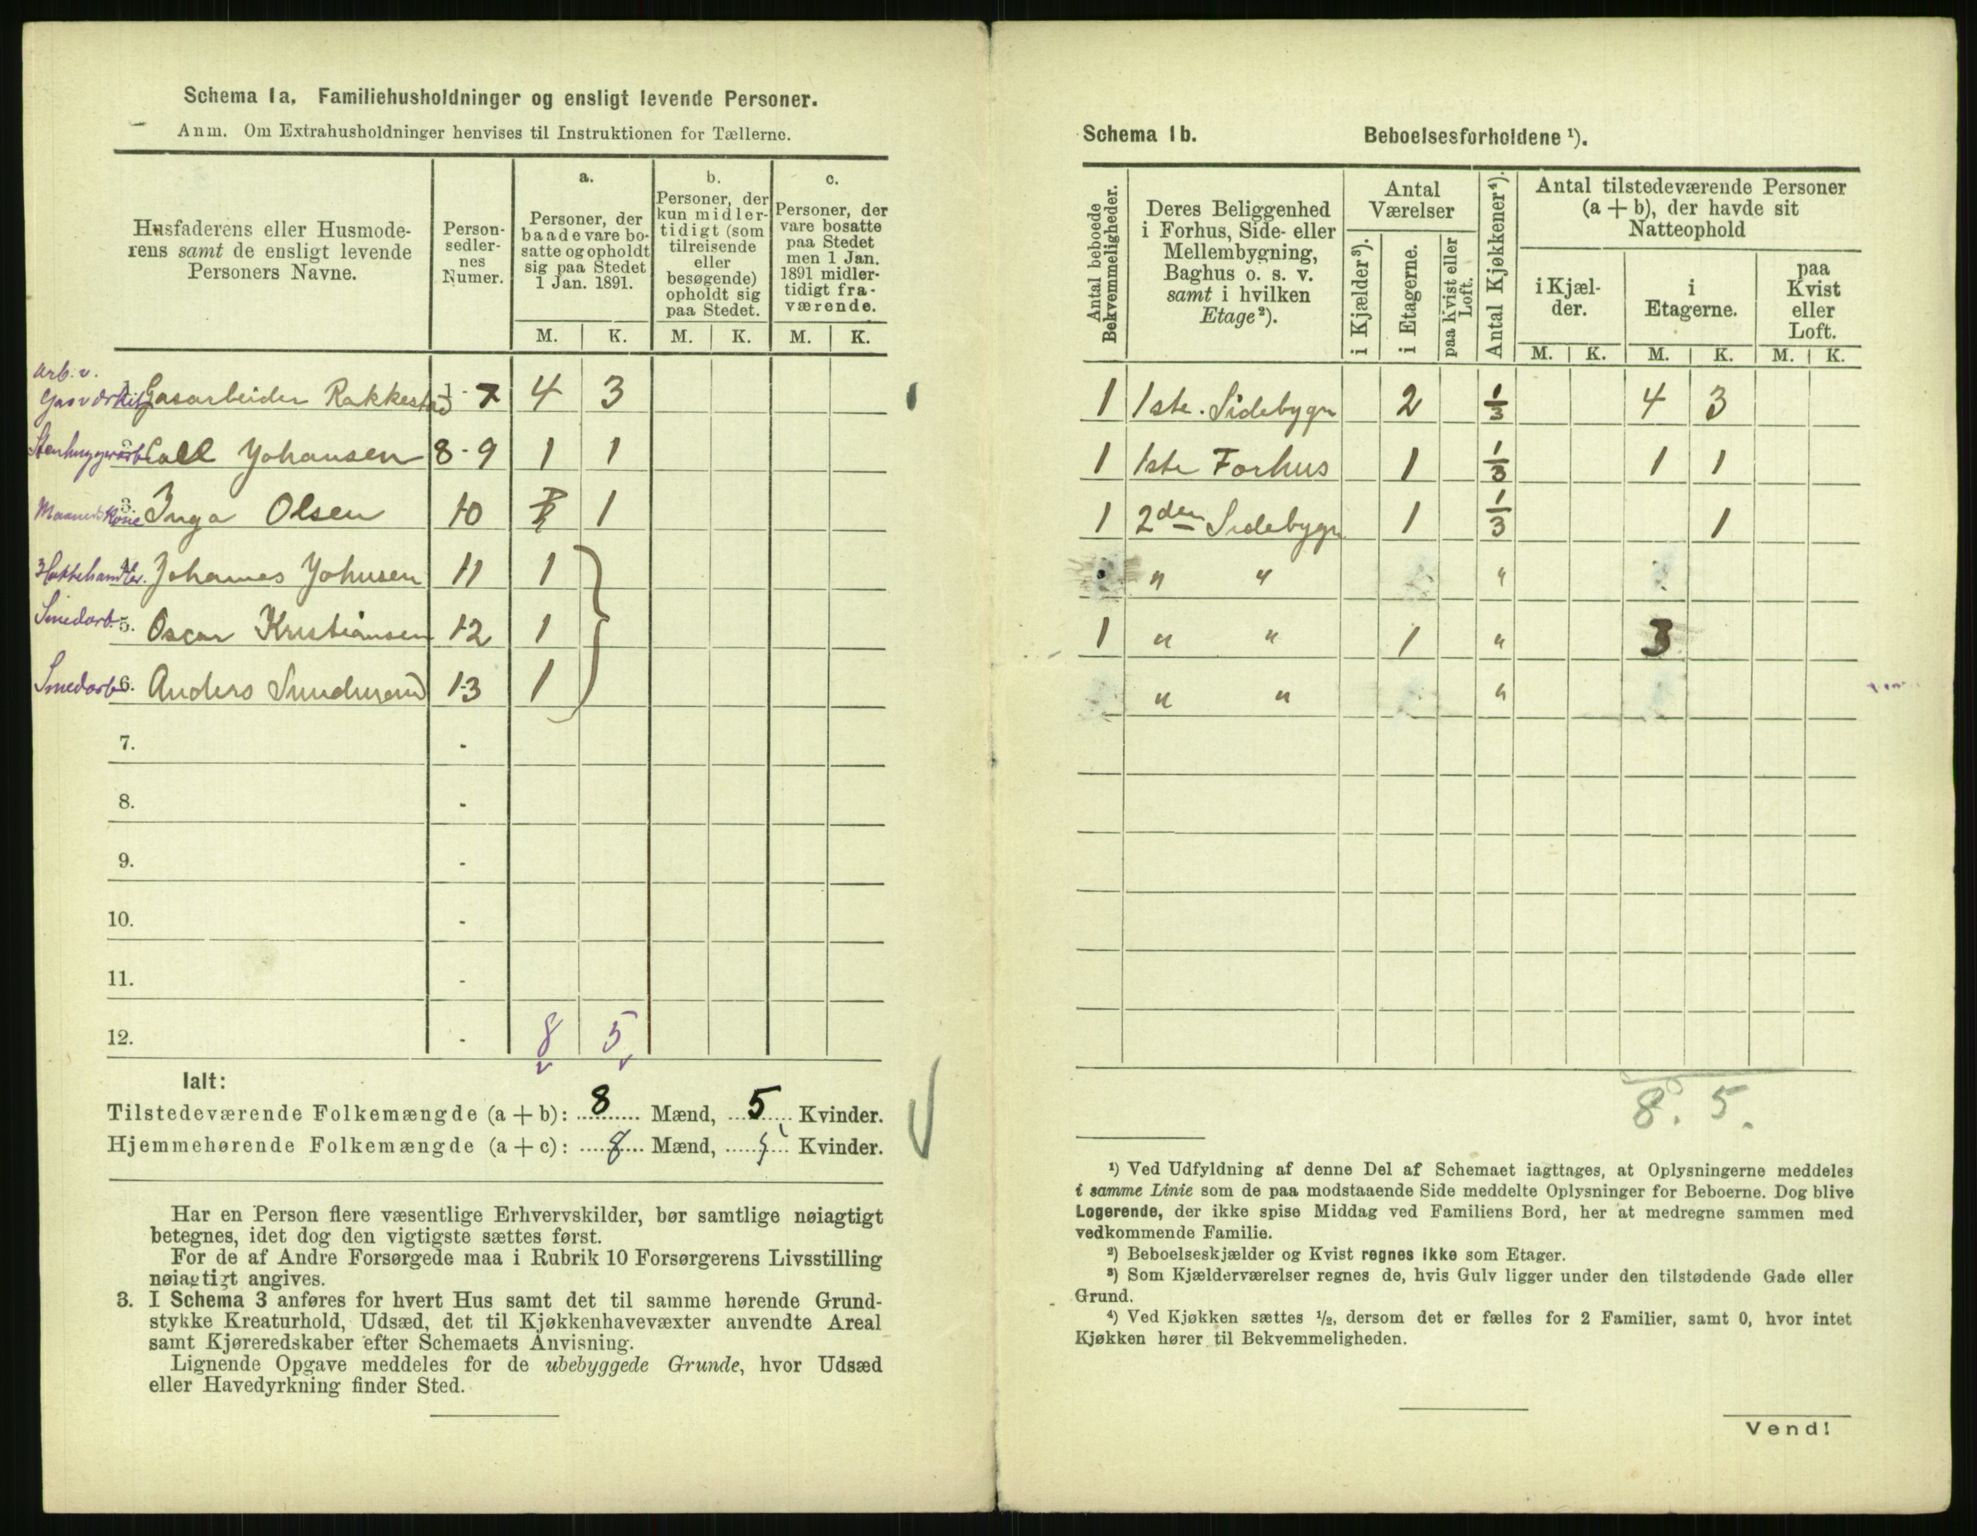 Schema 1a. Familiehusholdninger og ensligt levende Personer.
Anm. Om Extrahusholdninger henvises til Instruktionen for Tællerne.
Husfaderens eller Husmode-
rens samt de ensligt levende
Personers Navne.
Person-
sedler-
nes
Numer.
a.
Personer, der
baade vare bo-
satte og opholdt
sig paa Stedet
1 Jan. 1891.
b.
Personer, der
kun midler-
tidigt (som
tilreisende
eller
besøgende)
opholdt sig
paa Stedet.
c.
Personer, der
vare bosatte
paa Stedet
men 1 Jan.
1891 midler-
tidigt fra-
værende.
M. K. M. K. M. K.
Arb. v.
Gasværket Gasarbeider Rakkestad 1-7 4 3
Stenhuggerarb. Call Johansen 8-9 1 1
3. Inga Olsen 10 1
Johannes Johnsen 11 1
Smedarb. 5. Oscar Kristiansen 12 1
Smedarb 6. Anders Sundmand 13 1
7. -
8. -
9. -
10. -
11. -
12. - 8 5
Ialt:
Tilstedeværende Folkemængde (a + b): 8 Mænd, 5 Kvinder.
Hjemmehørende Folkemængde (a + c): 8 Mænd, 5 Kvinder.
Har en Person flere væsentlige Erhvervskilder, bør samtlige nøiagtigt
betegnes, idet dog den vigtigste sættes først.
For de af Andre Forsørgede maa i Rubrik 10 Forsørgerens Livsstilling
nøiagtigt angives.
3. I Schema 3 anføres for hvert Hus samt det til samme hørende Grund-
stykke Kreaturhold, Udsæd, det til Kjøkkenhavevæxter anvendte Areal
samt Kjøreredskaber efter Schemaets Anvisning.
Lignende Opgave meddeles for de ubebyggede Grunde, hvor Udsæd
eller Havedyrkning finder Sted.
Schema 1b. Beboelsesforholdene ¹).
Antal beboede
Bekvemmeligheder.
Deres Beliggenhed
i Forhus, Side- eller
Mellembygning,
Baghus o. s. v.
samt i hvilken
Etage²).
Antal
Værelser
i Kjælder³).
i Etagerne.
paa Kvist eller
Loft.
Antal Kjøkkener⁴).
Antal tilstedeværende Personer
(a + b), der havde sit
Natteophold
i Kjæl-
der.
i
Etagerne.
paa
Kvist
eller
Loft.
M. K. M. K. M. K.
1 1ste. Sidebygn 2 1/3 4 3
1 1ste Forhus 1 1/3 1 1
1 2den Sidebygn 1 1/3 1
" " "
1 " " 1 " 3
" " "
8. 5.
¹) Ved Udfyldning af denne Del af Schemaet iagttages, at Oplysningerne meddeles
i samme Linie som de paa modstaaende Side meddelte Oplysninger for Beboerne. Dog blive
Logerende, der ikke spise Middag ved Familiens Bord, her at medregne sammen med
vedkommende Familie.
²) Beboelseskjælder og Kvist regnes ikke som Etager.
³) Som Kjælderværelser regnes de, hvis Gulv ligger under den tilstødende Gade eller
Grund.
⁴) Ved Kjøkken sættes ½, dersom det er fælles for 2 Familier, samt 0, hvor intet
Kjøkken hører til Bekvemmeligheden.
Vend!